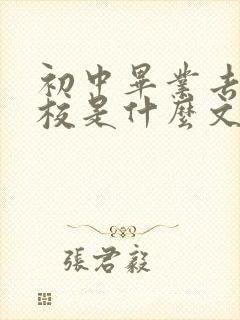 初中畢業去
校是什麼文
張君毅